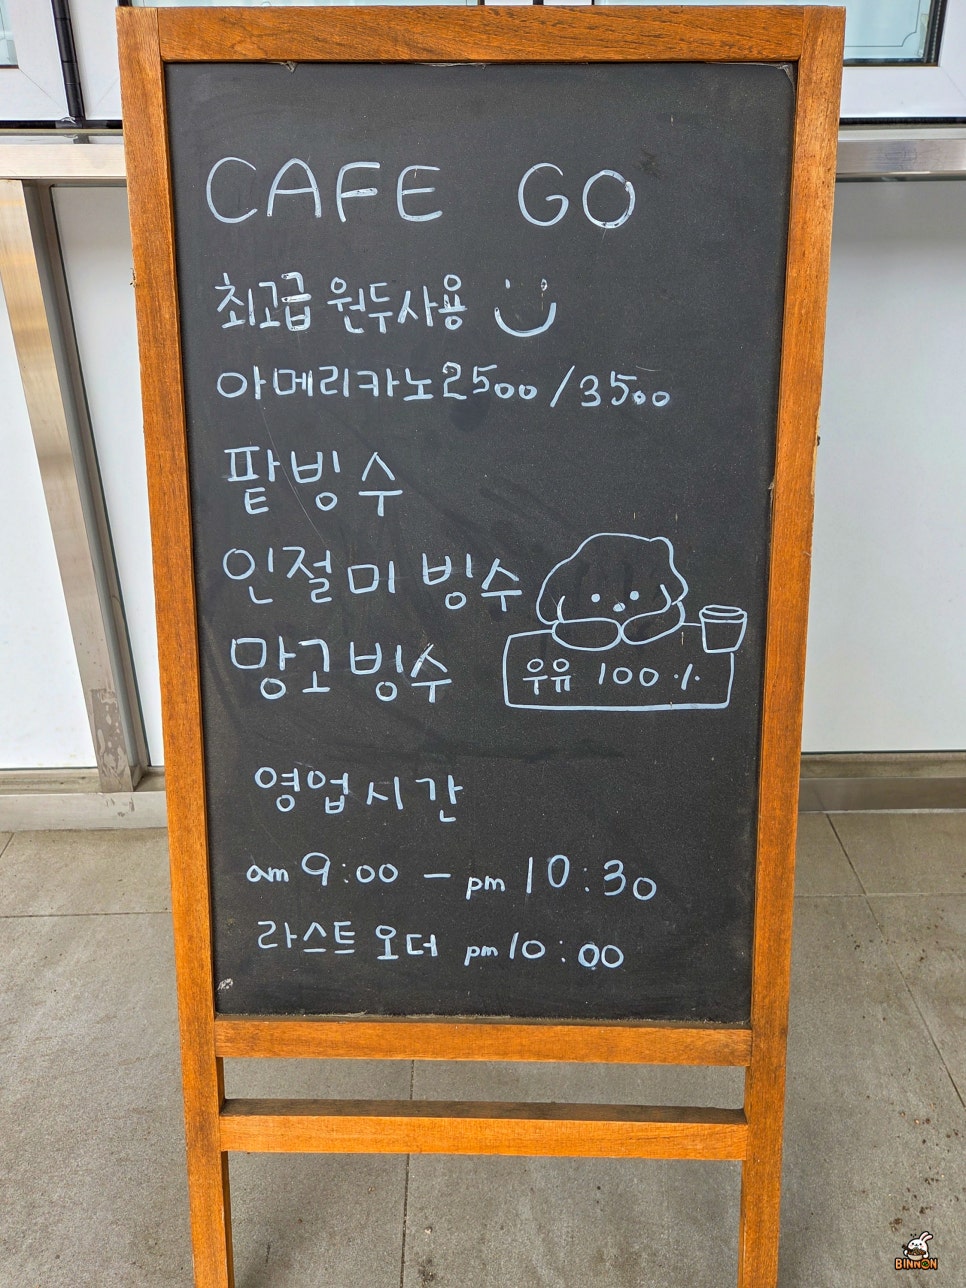 CAFE GO
최고급 원두사용
아메리카노 2500 / 3500
팥빙수
인절미 빙수
망고빙수
우유 100%
영업시간
am 9:00 - pm 10:30
라스트 오더 pm 10:00
BINNON